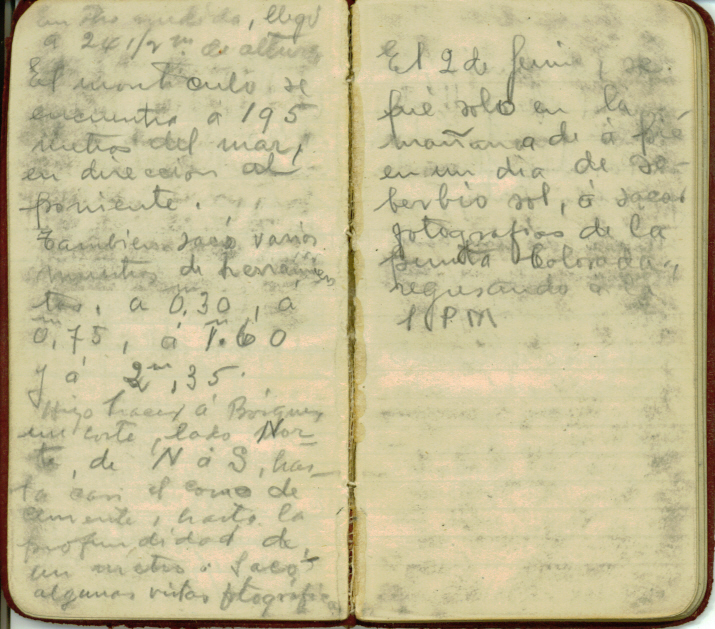 medida, llegó
a 24 1/2 m. de altura
El monticulo se
encuentra á 195
metros del mar,
en direccion al
poniente.
Tambien sacó varias
muestras de herramien
tas, a 0,30, á
0,75, á 1.60
y á 2m,35.
Hizo hacer á
un corte, lado Nor-
te, de N á S, has-
ta casi el como de
cemente, hasta la
profundidad de
un metro. Sacó
algunas vistas fotografi
El 2 de Junio, se
fué solo en la
mañana de á pié
en un dia de so-
berbio sol, á sacar
fotografias de la
punta Colorada,
regresando á la
1 PM